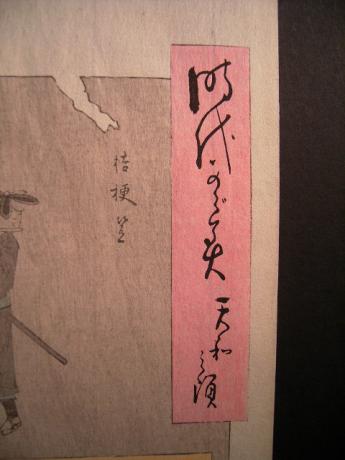 時代かゞみ 天和之頃
桔梗笠